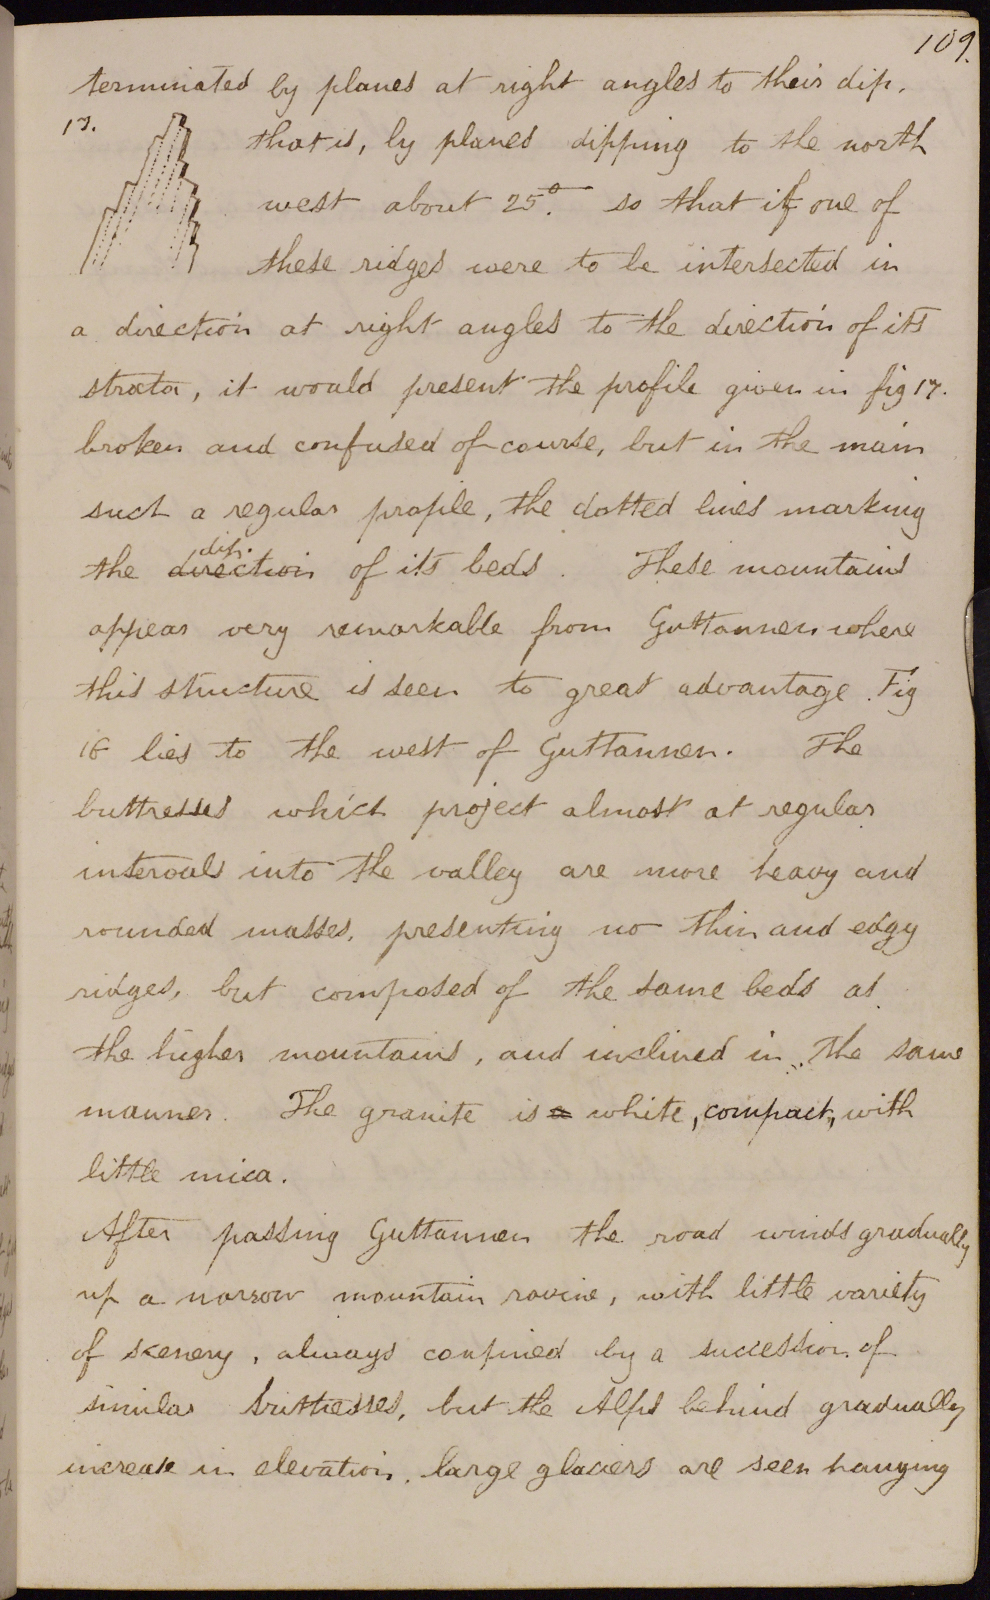 109.
terminated by planes at right angles to their dip,
17.
that is, by planes dipping to the north
west about 25°. so that if one of
these ridges were to be intersected in
a direction at right angles to the direction of its
strata, it would present the profile given in fig 17.
broken and confused of course, but in the main
such a regular profile, the dotted lines marking
dip.
the direction of its beds. These mountains
appear very remarkable from Guttannen where
this structure is seen to great advantage. Fig
16 lies to the west of Guttannen. The
buttresses which project almost at regular
intervals into the valley are more heavy and
rounded masses, presenting no thin and edgy
ridges, but composed of the same beds as
the higher mountains, and inclined in the same
manner. The granite is a white, compact, with
little mica.
After passing Guttannen the road winds gradually
up a narrow mountain ravine, with little variety
of scenery, always confined by a succession of
similar buttresses, but the Alps behind gradually
increase in elevation, large glaciers are seen hanging